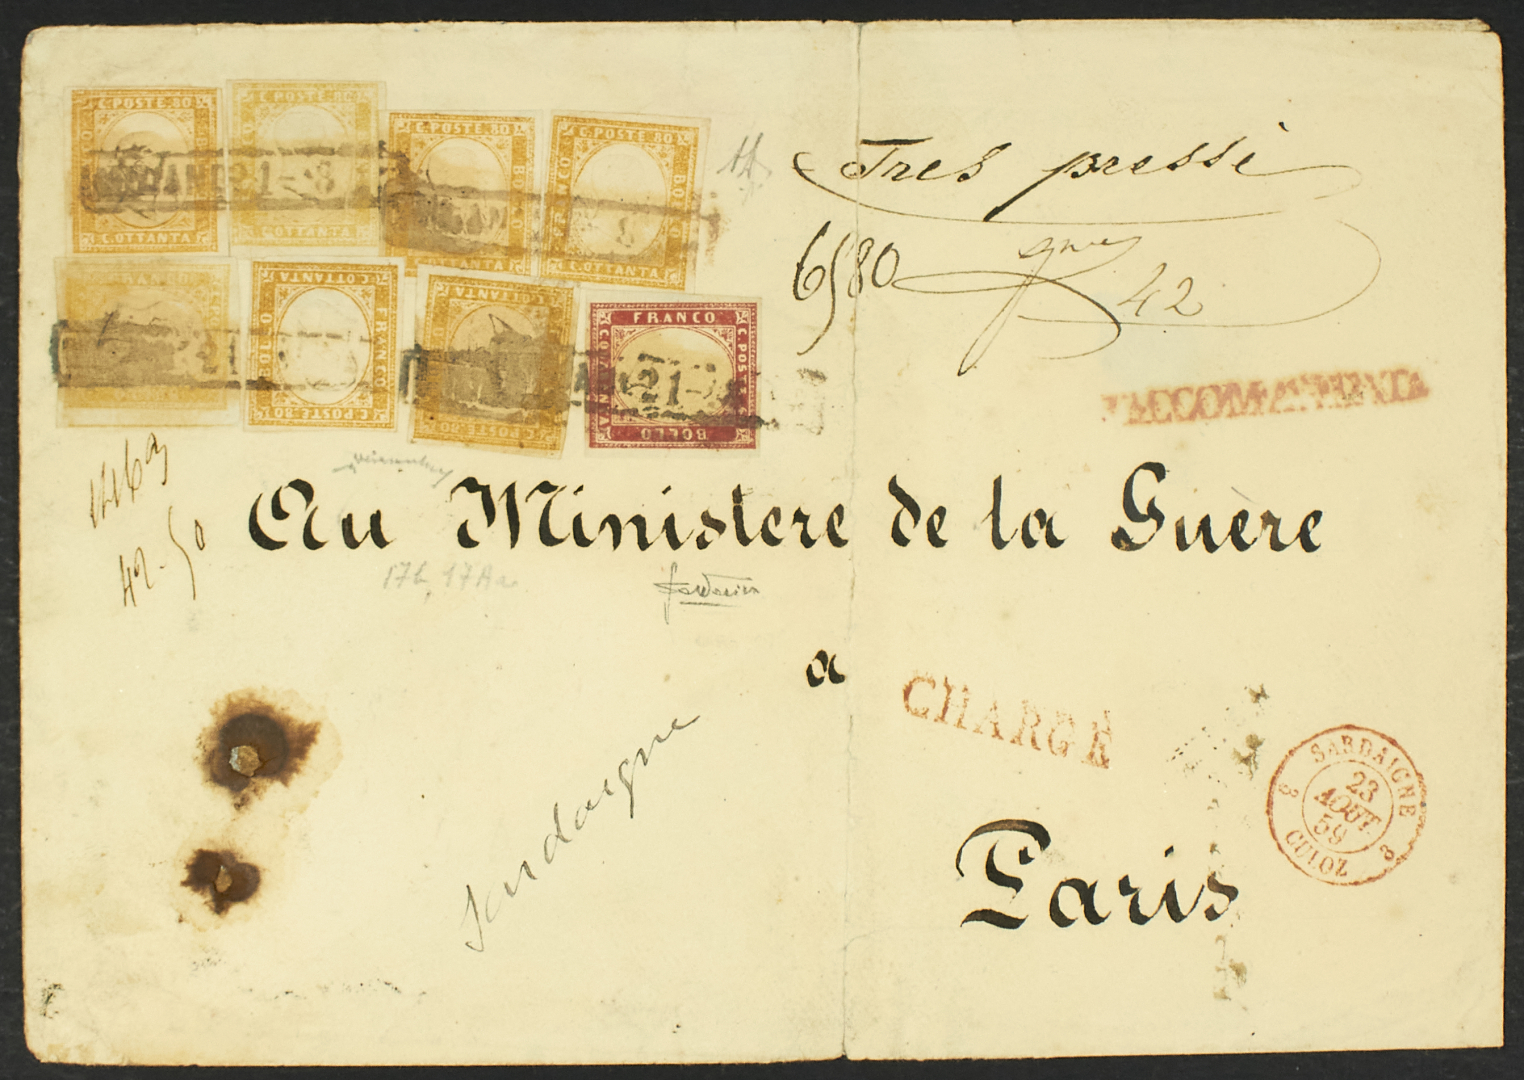 C. POSTE. 80
C. OTTANTA
C. POSTE. 80
C. OTTANTA
C. POSTE. 80
BOLLO
C. OTTANTA
C. POSTE. 80
FRANCO
BOLLO
C. OTTANTA
21-8
8
C. OTTANTA
FRANCO
BOLLO
C. POSTE. 80
C. OTTANTA
C. POSTE. 80
FRANCO
C. POSTE
BOLLO
21
Tres pressé
6580
42
RACCOMANDATA
42-50
Au Ministere de la Guère
17b, 17Aa
a
CHARGÉ
Sardaigne
SARDAIGNE
3
23
AOUT
59
3
CULOZ
Paris